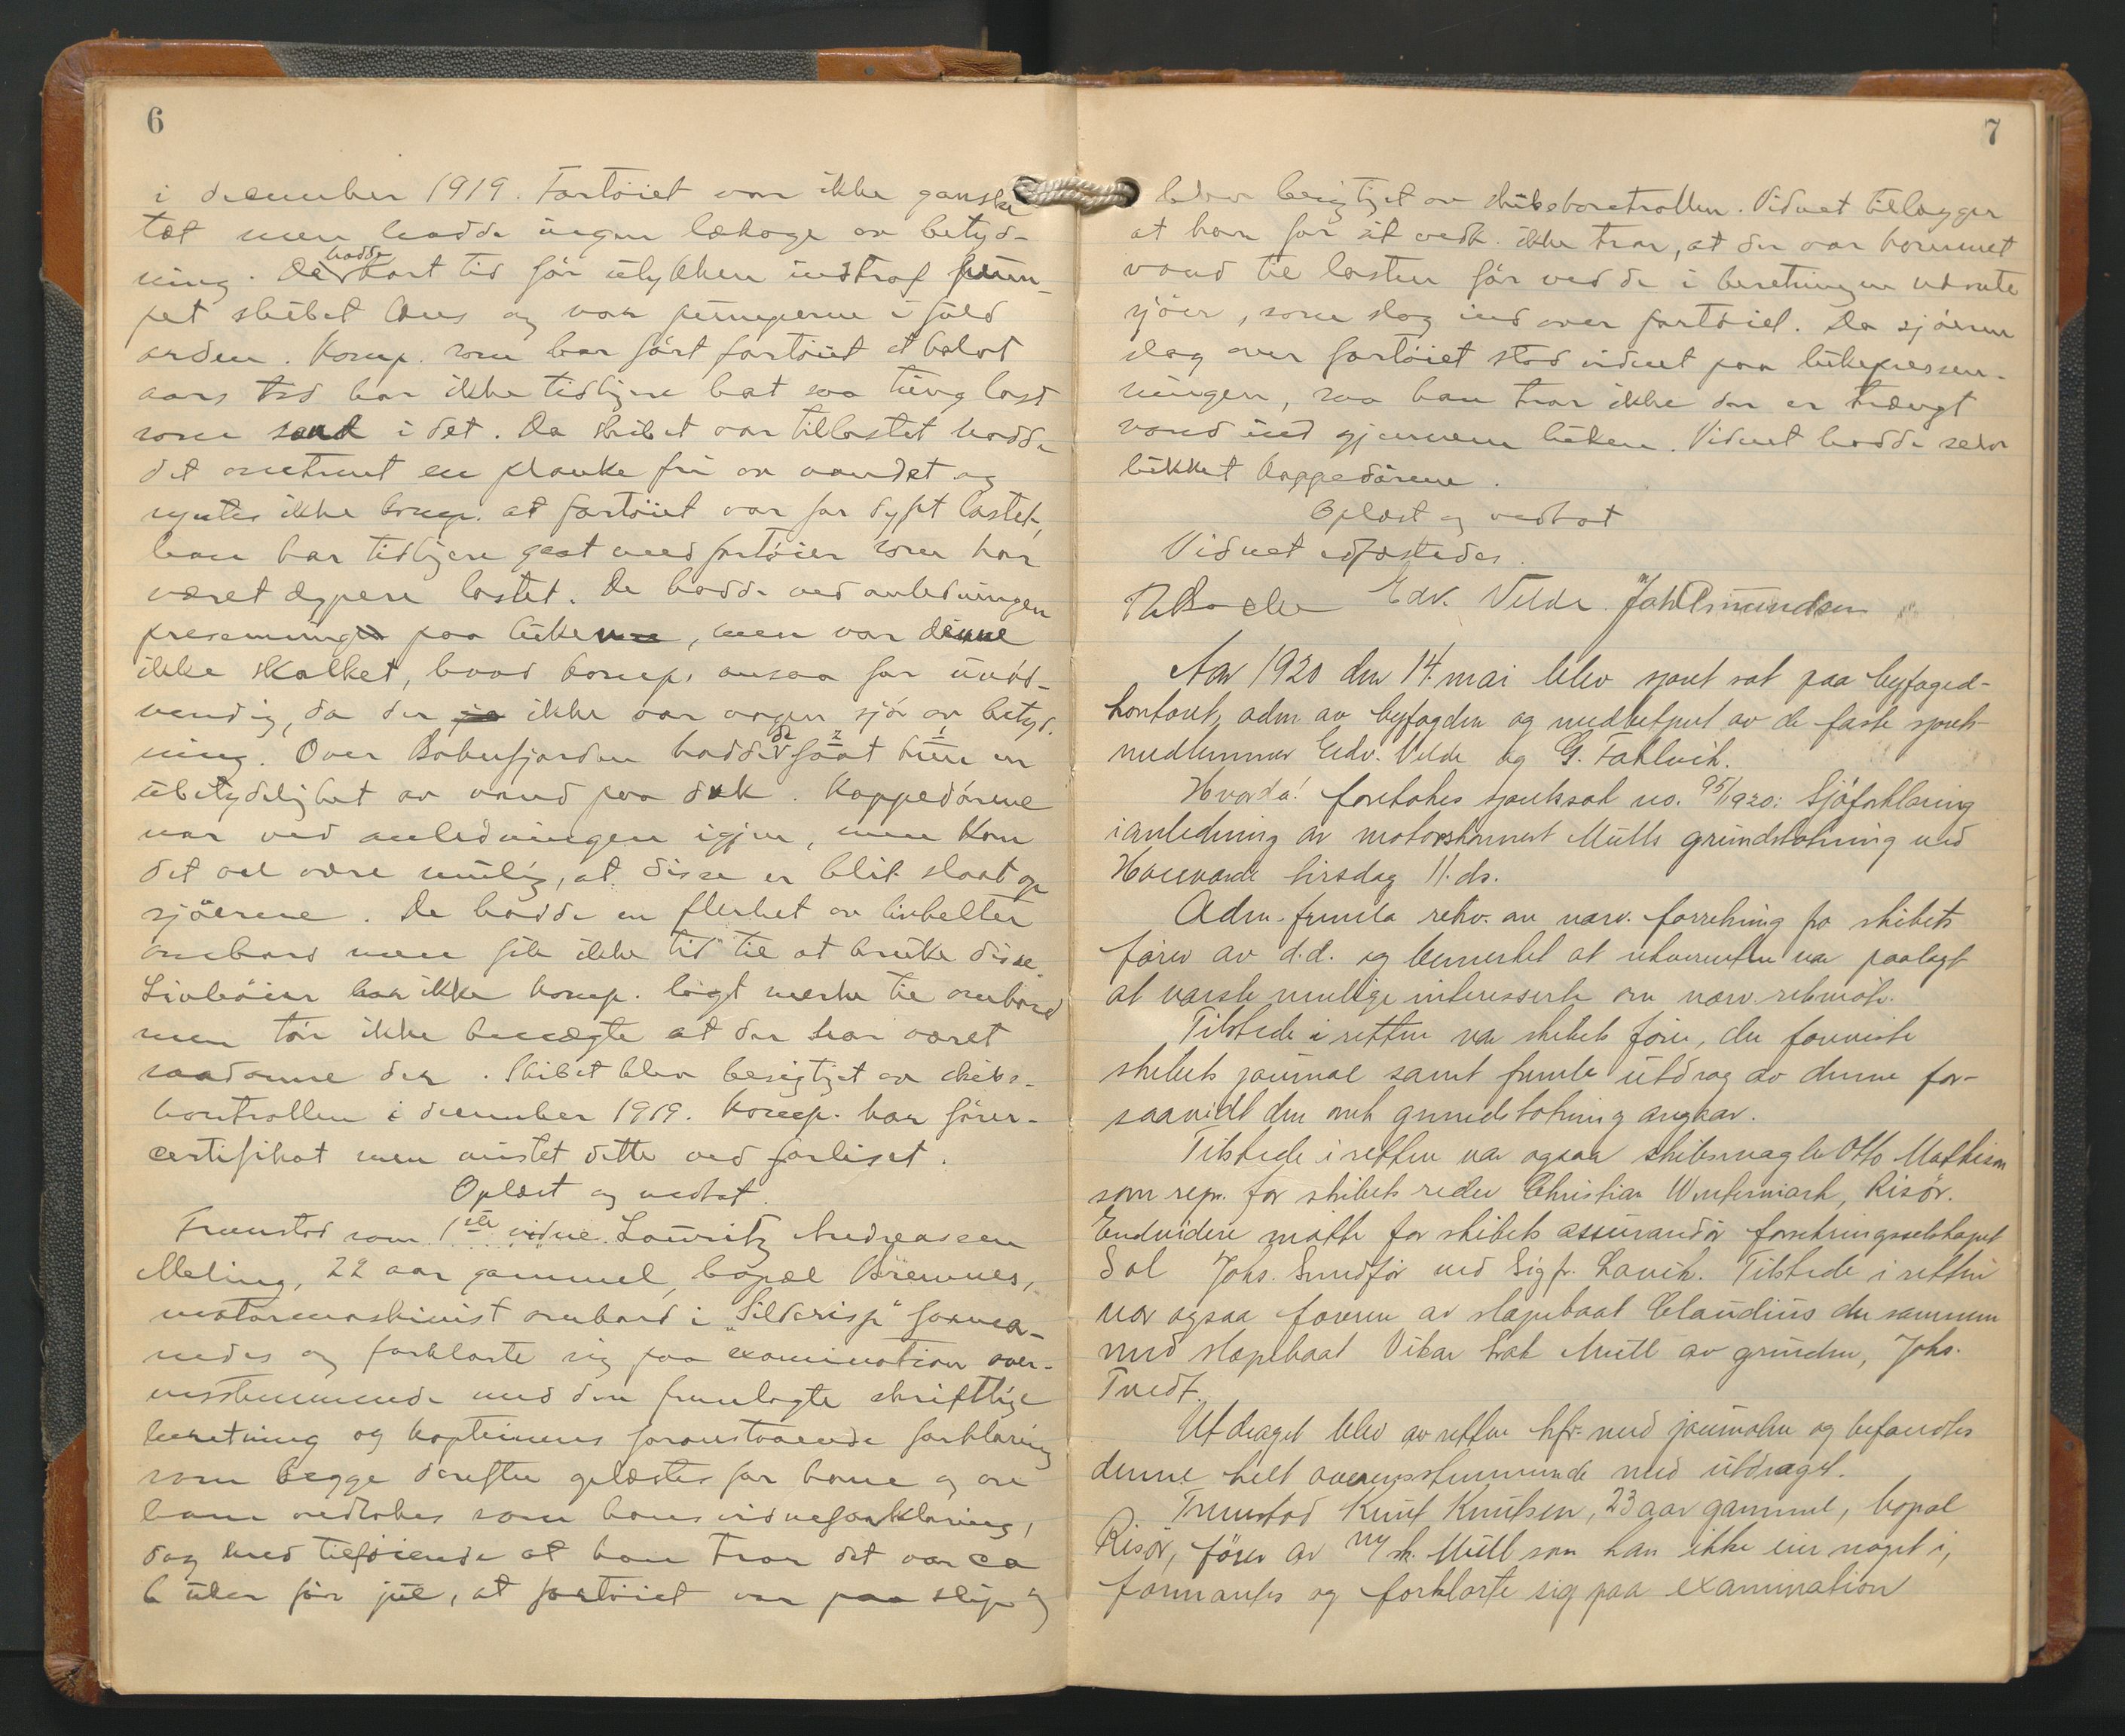 6
i december 1919. Fartöiet var ikke ganske
tæt men hadde ingen lækage av betyd-
ning. De hadde kort tid för ulykken indtraf pum-
pet skibet læns og var pumperne i fuld
orden. Komp. som har fört fartöiet et halvt
aars tid har ikke tidligere hat saa tung last
som sand i det. Da skibet var tillastet hadde
det omtrent en planke fri av vandet og
syntes ikke komp. at fartöiet var for dypt lastet,
han har tidligere gaat med fartöier som har
været dypere lastet. De hadde ved anledningen
presenning paa luken, men var denne
ikke skalket, hvad komp. ansaa for unöd-
vendig, da der ikke var nogen sjö av betyd-
ning. Over Boknfjorden hadde de faat kun en
ubetydelighet av vand paa dæk. Kappedörene
var ved anledningen igjen, men kan
det vel være mulig, at disse er blit slaat op
sjöerne. De hadde en flerhet av livbelter
ombord men fik ikke tid til at bruke disse.
Livböier har ikke komp. lagt merke til ombord
men tör ikke benegte at der har været
saadanne der. Skibet blev besigtiget av skibs-
kontrollen i december 1919. Komp. har förer-
certifikat men mistet dette ved forliset.
Oplæst og vedtat.
Fremstod som 1ste vidne Lauritz Andreassen
Meling, 22 aar gammel, bopæl Bremnes,
motormaskinist ombord i "Sildkrisp" forma-
nedes og forklarte sig paa examination over-
ensstemmende med den fremlagte skriftlige
beretning og kapteinens foranstaaende forklaring
som begge derefter oplæstes for ham og av
ham vedtokes som hans vidneforklaring,
dog med tilföiende at han tror det var ca
6 uker för jul, at fartöiet var paa slip og
7
blev besigtiget av skibskontrollen. Vidnet tillægger
at han for sit vedk. ikke tror, at der var kommet
vand til lasten för ved de i beretningen nævnte
sjöer, som slog ind over fartöiet. Da sjöerne
slog over fartöiet stod vidnet paa lukepresen-
ningen, saa han tror ikke der er trængt
vand ind gjennem luken. Vidnet hadde selv
lukket kappedörene.
Oplæst og vedtat
Vidnet edfæstedes.
Edv. Velde. Joh Amundsen
Aar 1920 den 14. mai blev sjöret sat paa byfoged-
kontoret, adm. av byfogden og medbetjent av de faste sjörets-
medlemmer Edv. Velde og G. Fahlvik.
Hvorda! foretokes sjöretssak no. 95/1920: Sjöforklaring
i anledning av motorskonnert Mulls grundstötning ved
tirsdag 11. ds.
Adm. fremla rekv. om nærv. forretning fra skibets
förer av d.d. og bemerket at rekvirenten var paalagt
at varsle mulige interesserte om nærv. retsmöte.
Tilstede i retten var skibets förer, der foreviste
skibets journal samt fremla utdrag av denne for-
saavidt den omh. grundstötning angaar.
Tilstede i retten var ogsaa skibsmægler Otto Mathisen
som repr. for skibets reder Christian Wintermark, Risör.
Endvidere mötte for skibets assurandör forsikringsselskapet
Sol Johs. Sundför ved Sigfr. Lavik. Tilstede i retten
var ogsaa föreren av slæpebaat Claudius der sammen
med slæpebaat Vikar trak Mull av grunden, Johs.
Tvedt.
Utdraget blev av retten kfr. med journalen og befandtes
denne helt overensstemmende med utdraget.
Fremstod Knut Knutsen, 23 aar gammel, bopæl
Risör, förer av m/sk. Mull som han ikke eier noget i,
formantes og forklarte sig paa examination